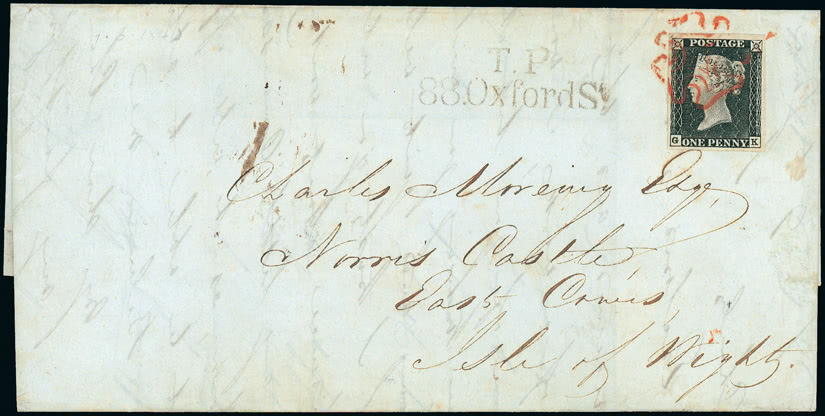 T.P
88.Oxford St
POSTAGE
G ONE PENNY K
Charles Moreing Esqe,
Norris Castle,
East Cowes,
Isle of Wight.